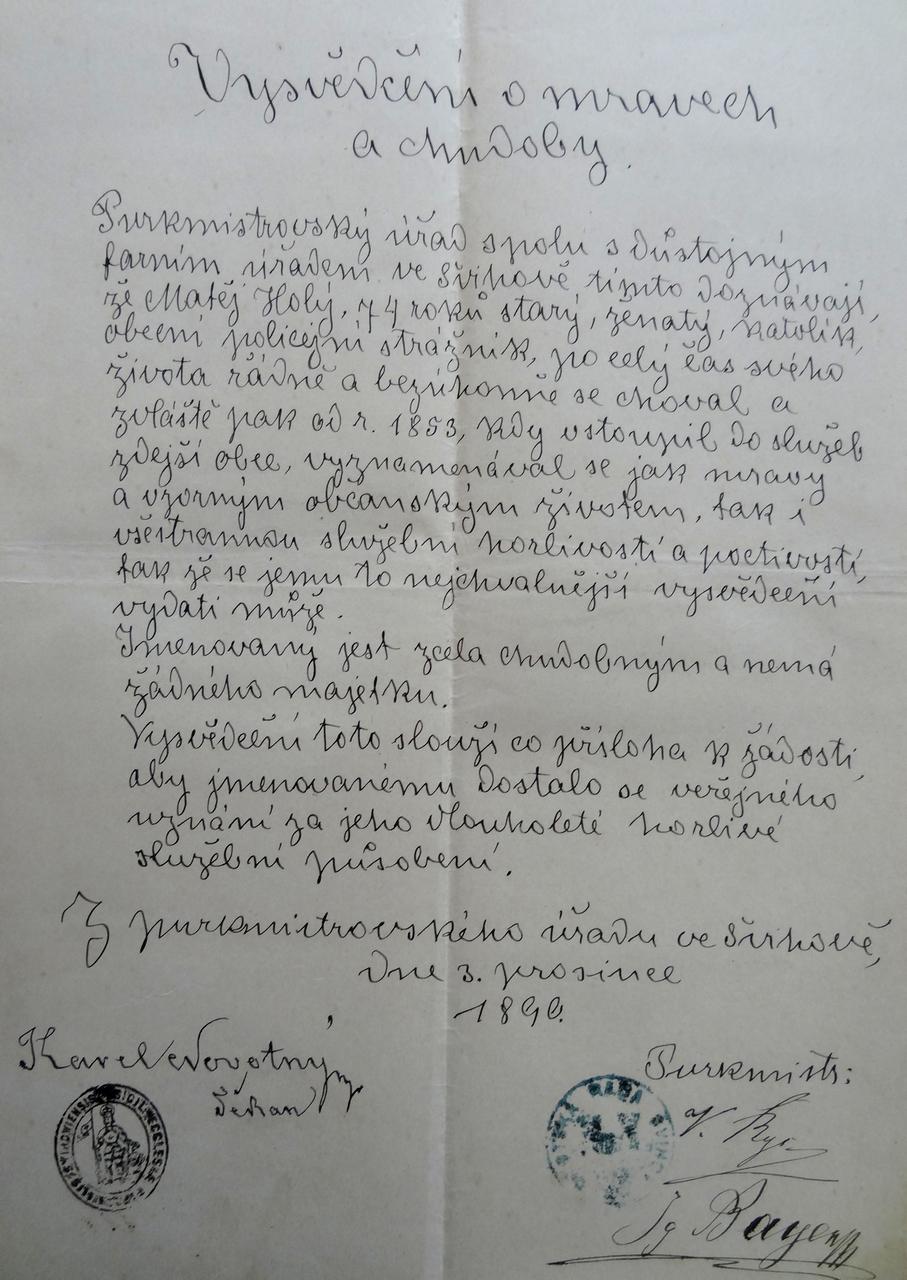 Vysvědčení o mravech
a chudoby.
Purkmistrovský úřad spolu s důstojným
farním úřadem ve Švihově tímto doznávají,
že Matěj Holý, 74 roků starý, ženatý, katolík,
obecní policejní strážník, po celý čas svého
života řádně a bezúhonně se choval a
zvláště pak od r. 1853, kdy vstoupil do služeb
zdejší obce, vyznamenával se jak mravy
a vzorným občanským životem, tak i
všestrannou služební horlivostí a poctivostí,
tak že se jemu to nejchvalnější vysvědčení
vydati může.
Jmenovaný jest zcela chudobným a nemá
žádného majetku.
Vysvědčení toto slouží co příloha k žádosti,
aby jmenovanému dostalo se veřejného
uznání za jeho dlouholeté horlivé
služební působení.
Z purkmistrovského úřadu ve Švihově,
dne 3. prosince
1890.
Karel Novotný
Děkan
Purkmistr:
V.
Ig Bayer